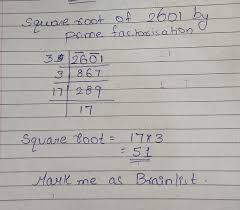 Square root of 2601 by
prime factorisation
3 | 2601
3 | 867
17 | 289
17
Square root = 17*3
= 51
Mark me as Brainlist.